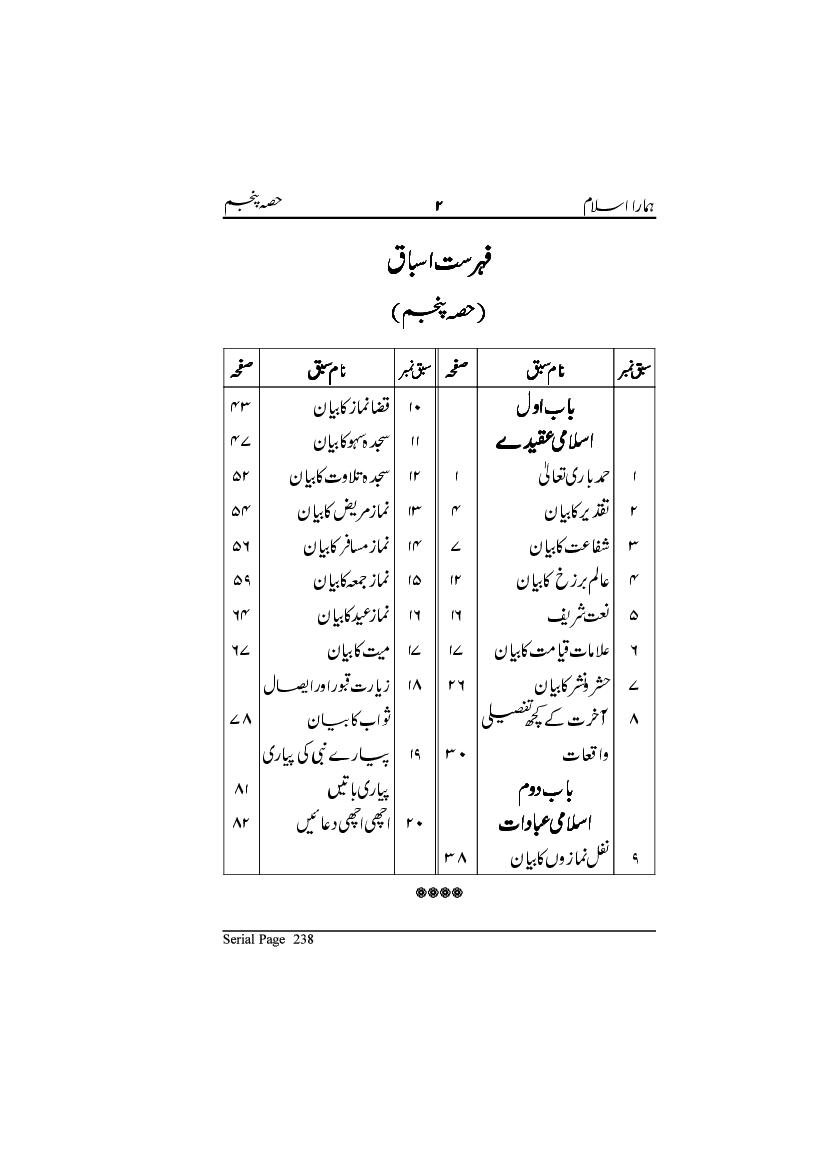 ہمارا اسلام ۲ حصہ پنجم
فہرست اسباق
(حصہ پنجم)
سبق نمبر نام سبق صفحہ
باب اول
اسلامی عقیدے
۱ حمد باری تعالیٰ ۱
۲ تقدیر کا بیان ۴
۳ شفاعت کا بیان ۷
۴ عالم برزخ کا بیان ۱۲
۵ نعت شریف ۱۶
۶ علامات قیامت کا بیان ۱۷
۷ حشر و نشر کا بیان ۲۶
۸ آخرت کے کچھ تفصیلی
واقعات ۳۰
باب دوم
اسلامی عبادات
۹ نفل نمازوں کا بیان ۳۸
سبق نمبر نام سبق صفحہ
۱۰ قضا نماز کا بیان ۴۳
۱۱ سجدہ سہو کا بیان ۴۷
۱۲ سجدہ تلاوت کا بیان ۵۲
۱۳ نماز مریض کا بیان ۵۴
۱۴ نماز مسافر کا بیان ۵۶
۱۵ نماز جمعہ کا بیان ۵۹
۱۶ نماز عید کا بیان ۶۴
۱۷ میت کا بیان ۶۷
۱۸ زیارت قبور اور ایصال
ثواب کا بیان ۷۸
۱۹ پیارے نبی کی پیاری
پیاری باتیں ۸۱
۲۰ اچھی اچھی دعائیں ۸۲
Serial Page 238